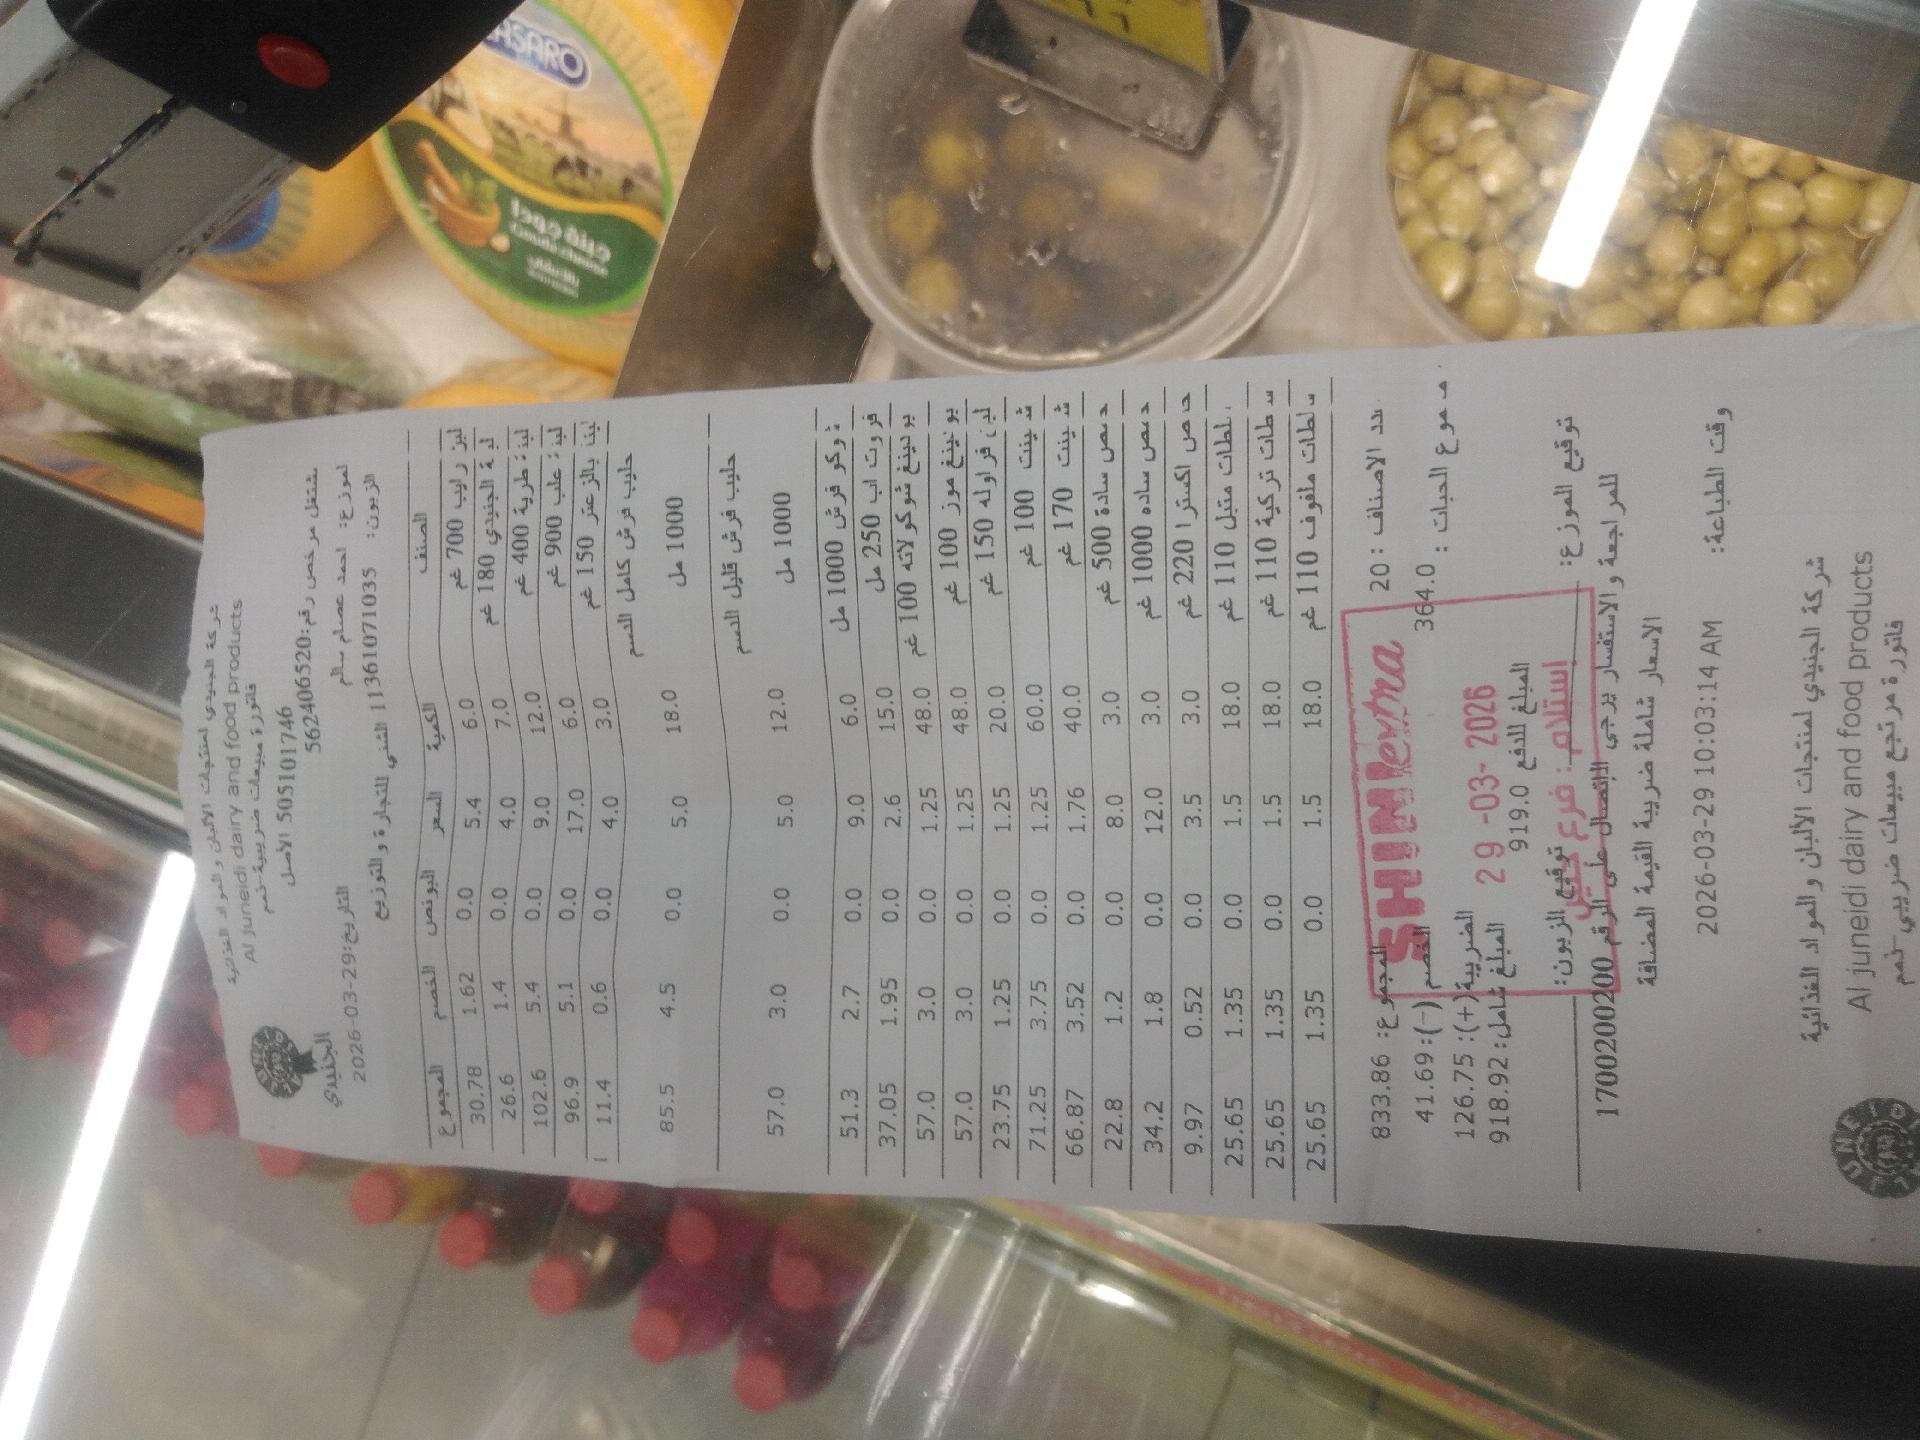 شركة الجنيدي لمنتجات الألبان والمواد الغذائية
Al juneidi dairy and food products
فاتورة مبيعات ضريبية-نعم
505101746 الأصل
مشتغل مرخص رقم:562406520
الجنيدي
لموزع: احمد عصام سالم
التاريخ:2026-03-29
الزبون: 11361071035 الشني للتجارة والتوزيع
الصنف الكمية السعر البونص الخصم المجموع
لبن رايب 700 غم 6.0 5.4 0.0 1.62 30.78
لبنة الجنيدي 180 غم 7.0 4.0 0.0 1.4 26.6
لبنة طرية 400 غم 12.0 9.0 0.0 5.4 102.6
لبنة علب 900 غم 6.0 17.0 0.0 5.1 96.9
بالزعتر 150 غم 3.0 4.0 0.0 0.6 11.4
حليب فرش كامل الدسم
1000 مل 18.0 5.0 0.0 4.5 85.5
حليب فرش قليل الدسم
1000 مل 12.0 5.0 0.0 3.0 57.0
شوكو فرش 1000 مل 6.0 9.0 0.0 2.7 51.3
فروت اب 250 مل 15.0 2.6 0.0 1.95 37.05
بودينغ شوكولاته 100 غم 48.0 1.25 0.0 3.0 57.0
بودينغ موز 100 غم 48.0 1.25 0.0 3.0 57.0
لبن فراوله 150 غم 20.0 1.25 0.0 1.25 23.75
شمينت 100 غم 60.0 1.25 0.0 3.75 71.25
شمينت 170 غم 40.0 1.76 0.0 3.52 66.87
حمص سادة 500 غم 3.0 8.0 0.0 1.2 22.8
حمص ساده 1000 غم 3.0 12.0 0.0 1.8 34.2
حمص اكسترا 220 غم 3.0 3.5 0.0 0.52 9.97
سلطات متبل 110 غم 18.0 1.5 0.0 1.35 25.65
سلطات تركية 110 غم 18.0 1.5 0.0 1.35 25.65
سلطات ملفوف 110 غم 18.0 1.5 0.0 1.35 25.65
عدد الاصناف : 20 المجموع: 833.86
مجموع الحبات : 364.0 الخصم (-): 41.69
SHINI extra
الضريبة(+): 126.75
29 -03- 2026
المبلغ للدفع 919.0 المبلغ شامل: 918.92
توقيع الموزع: توقيع الزبون:
إستلام: فرع
للمراجعة والاستفسار يرجى الاتصال على الرقم 1700200200
الاسعار شاملة ضريبة القيمة المضافة
وقت الطباعة: 2026-03-29 10:03:14 AM
شركة الجنيدي لمنتجات الألبان والمواد الغذائية
Al juneidi dairy and food products
فاتورة مرتجع مبيعات ضريبي-نعم